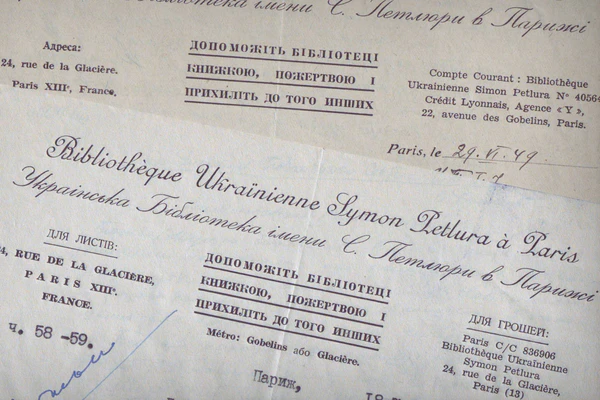 Бібліотека імени С. Петлюри в Парижі
Адреса:
24, rue de la Glacière.
Paris XIIIᵉ, France.
ДОПОМОЖІТЬ БІБЛІОТЕЦІ
КНИЖКОЮ, ПОЖЕРТВОЮ І
ПРИХИЛІТЬ ДО ТОГО ИНШИХ
Compte Courant : Bibliothèque
Ukrainienne Simon Petlura N° 40564
Crédit Lyonnais, Agence « Y »,
22, avenue des Gobelins, Paris.
Paris, le 29. VI. 49.
Bibliothèque Ukraïnienne Symon Petlura à Paris
Українська Бібліотека імени С. Петлюри в Парижі
ДЛЯ ЛИСТІВ:
4, RUE DE LA GLACIÈRE,
PARIS XIIIᵉ.
FRANCE.
ч. 58 -59.
ДОПОМОЖІТЬ БІБЛІОТЕЦІ
КНИЖКОЮ, ПОЖЕРТВОЮ І
ПРИХИЛІТЬ ДО ТОГО ИНШИХ
Métro: Gobelins або Glacière.
Париж,
ДЛЯ ГРОШЕЙ:
Paris C/C 836906
Bibliothèque Ukraïnienne
Symon Petlura
24, rue de la Glacière,
Paris (13)